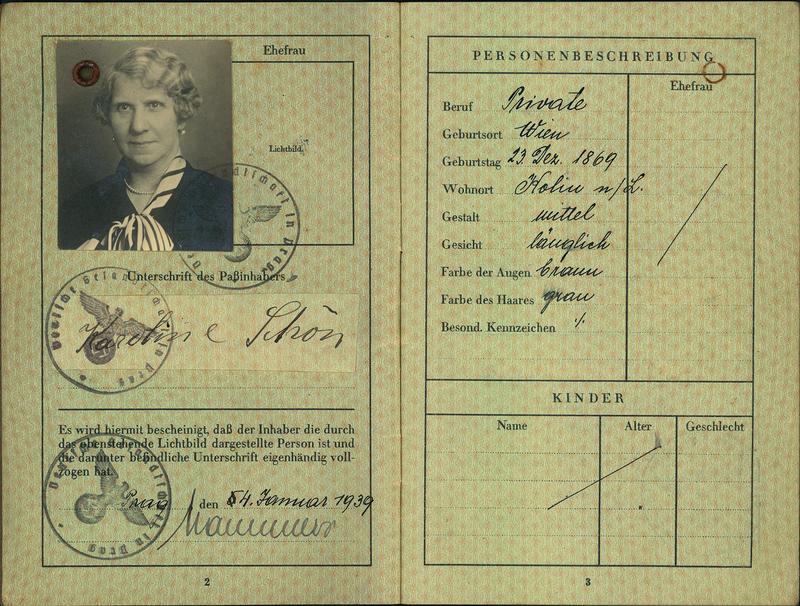 Ehefrau
Lichtbild.
Unterschrift des Paßinhabers
Karoline Schön
Es wird hiermit bescheinigt, daß der Inhaber die durch
das obenstehende Lichtbild dargestellte Person ist und
die darunter befindliche Unterschrift eigenhändig voll-
zogen hat.
Prag, den 4. Januar 1939
2
PERSONENBESCHREIBUNG
Ehefrau
Beruf Private
Geburtsort Wien
Geburtstag 23. Dez. 1869
Wohnort Kolin n/L.
Gestalt mittel
Gesicht länglich
Farbe der Augen braun
Farbe des Haares grau
Besond. Kennzeichen ./.
KINDER
Name Alter Geschlecht
3
Deutsche Gesandtschaft in Prag
Deutsche Gesandtschaft in Prag
Deutsche Gesandtschaft in Prag